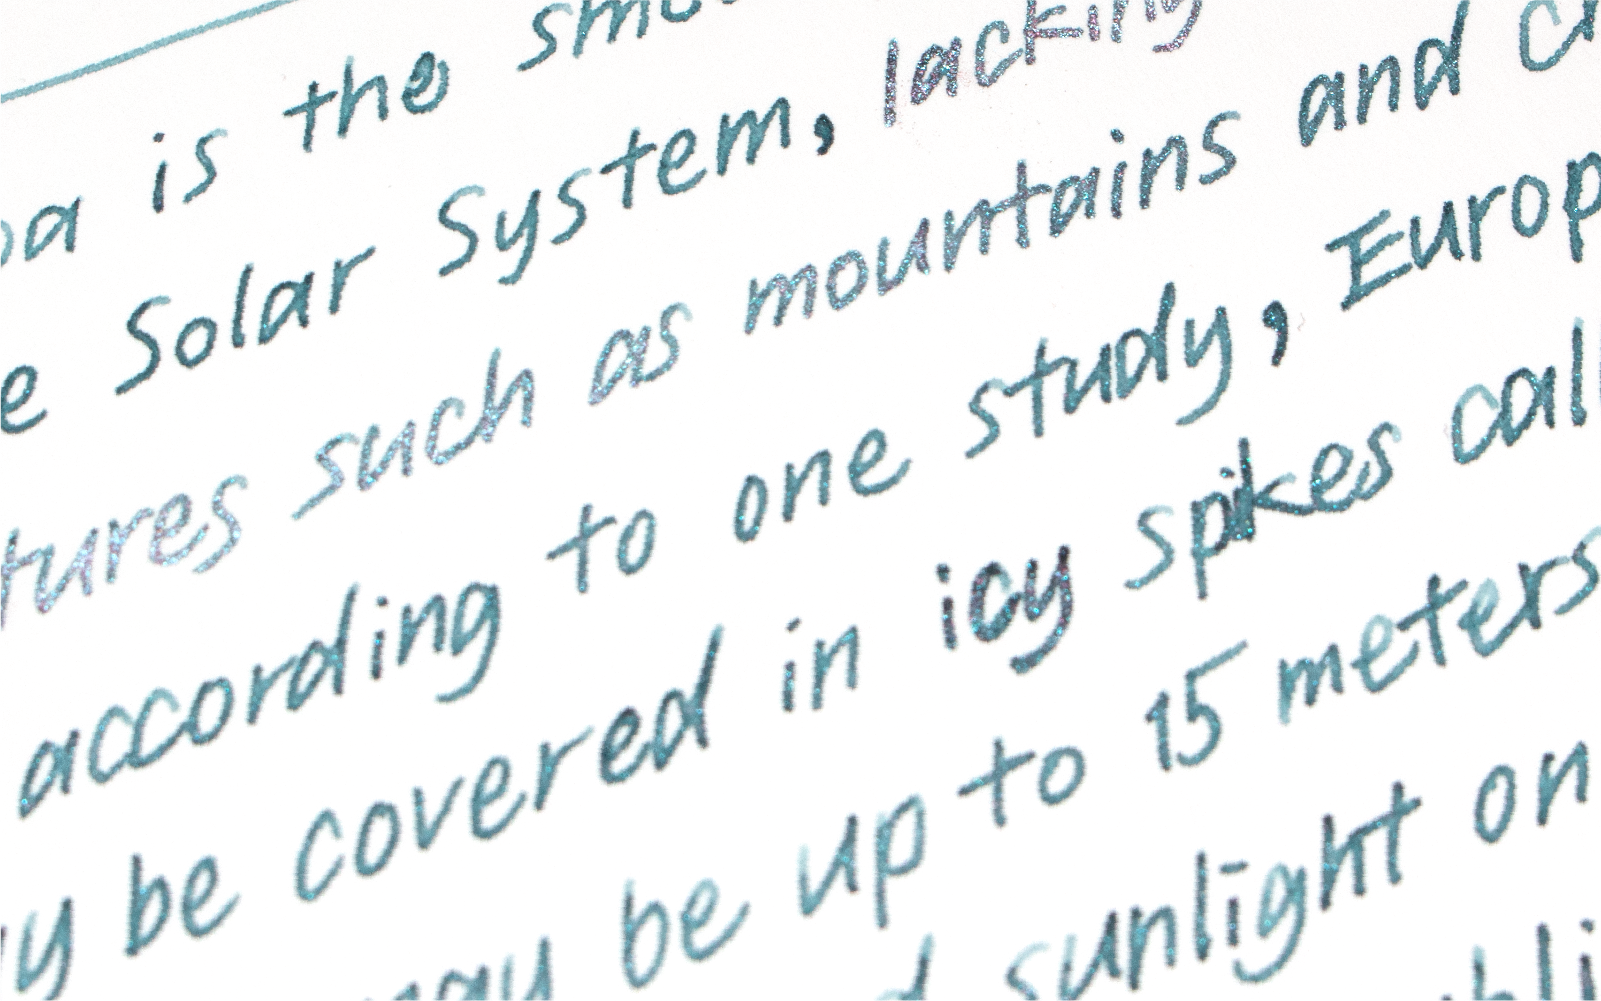 is the
Solar System, lacking
such as mountains and
according to one study, Europ
be covered in icy spikes
may be up to 15 meters
sunlight on